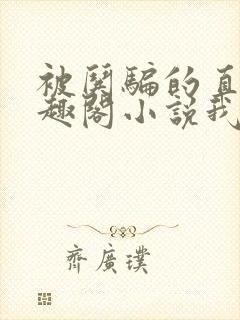 被闆騙的直
趣閣小說我
齊廣璞